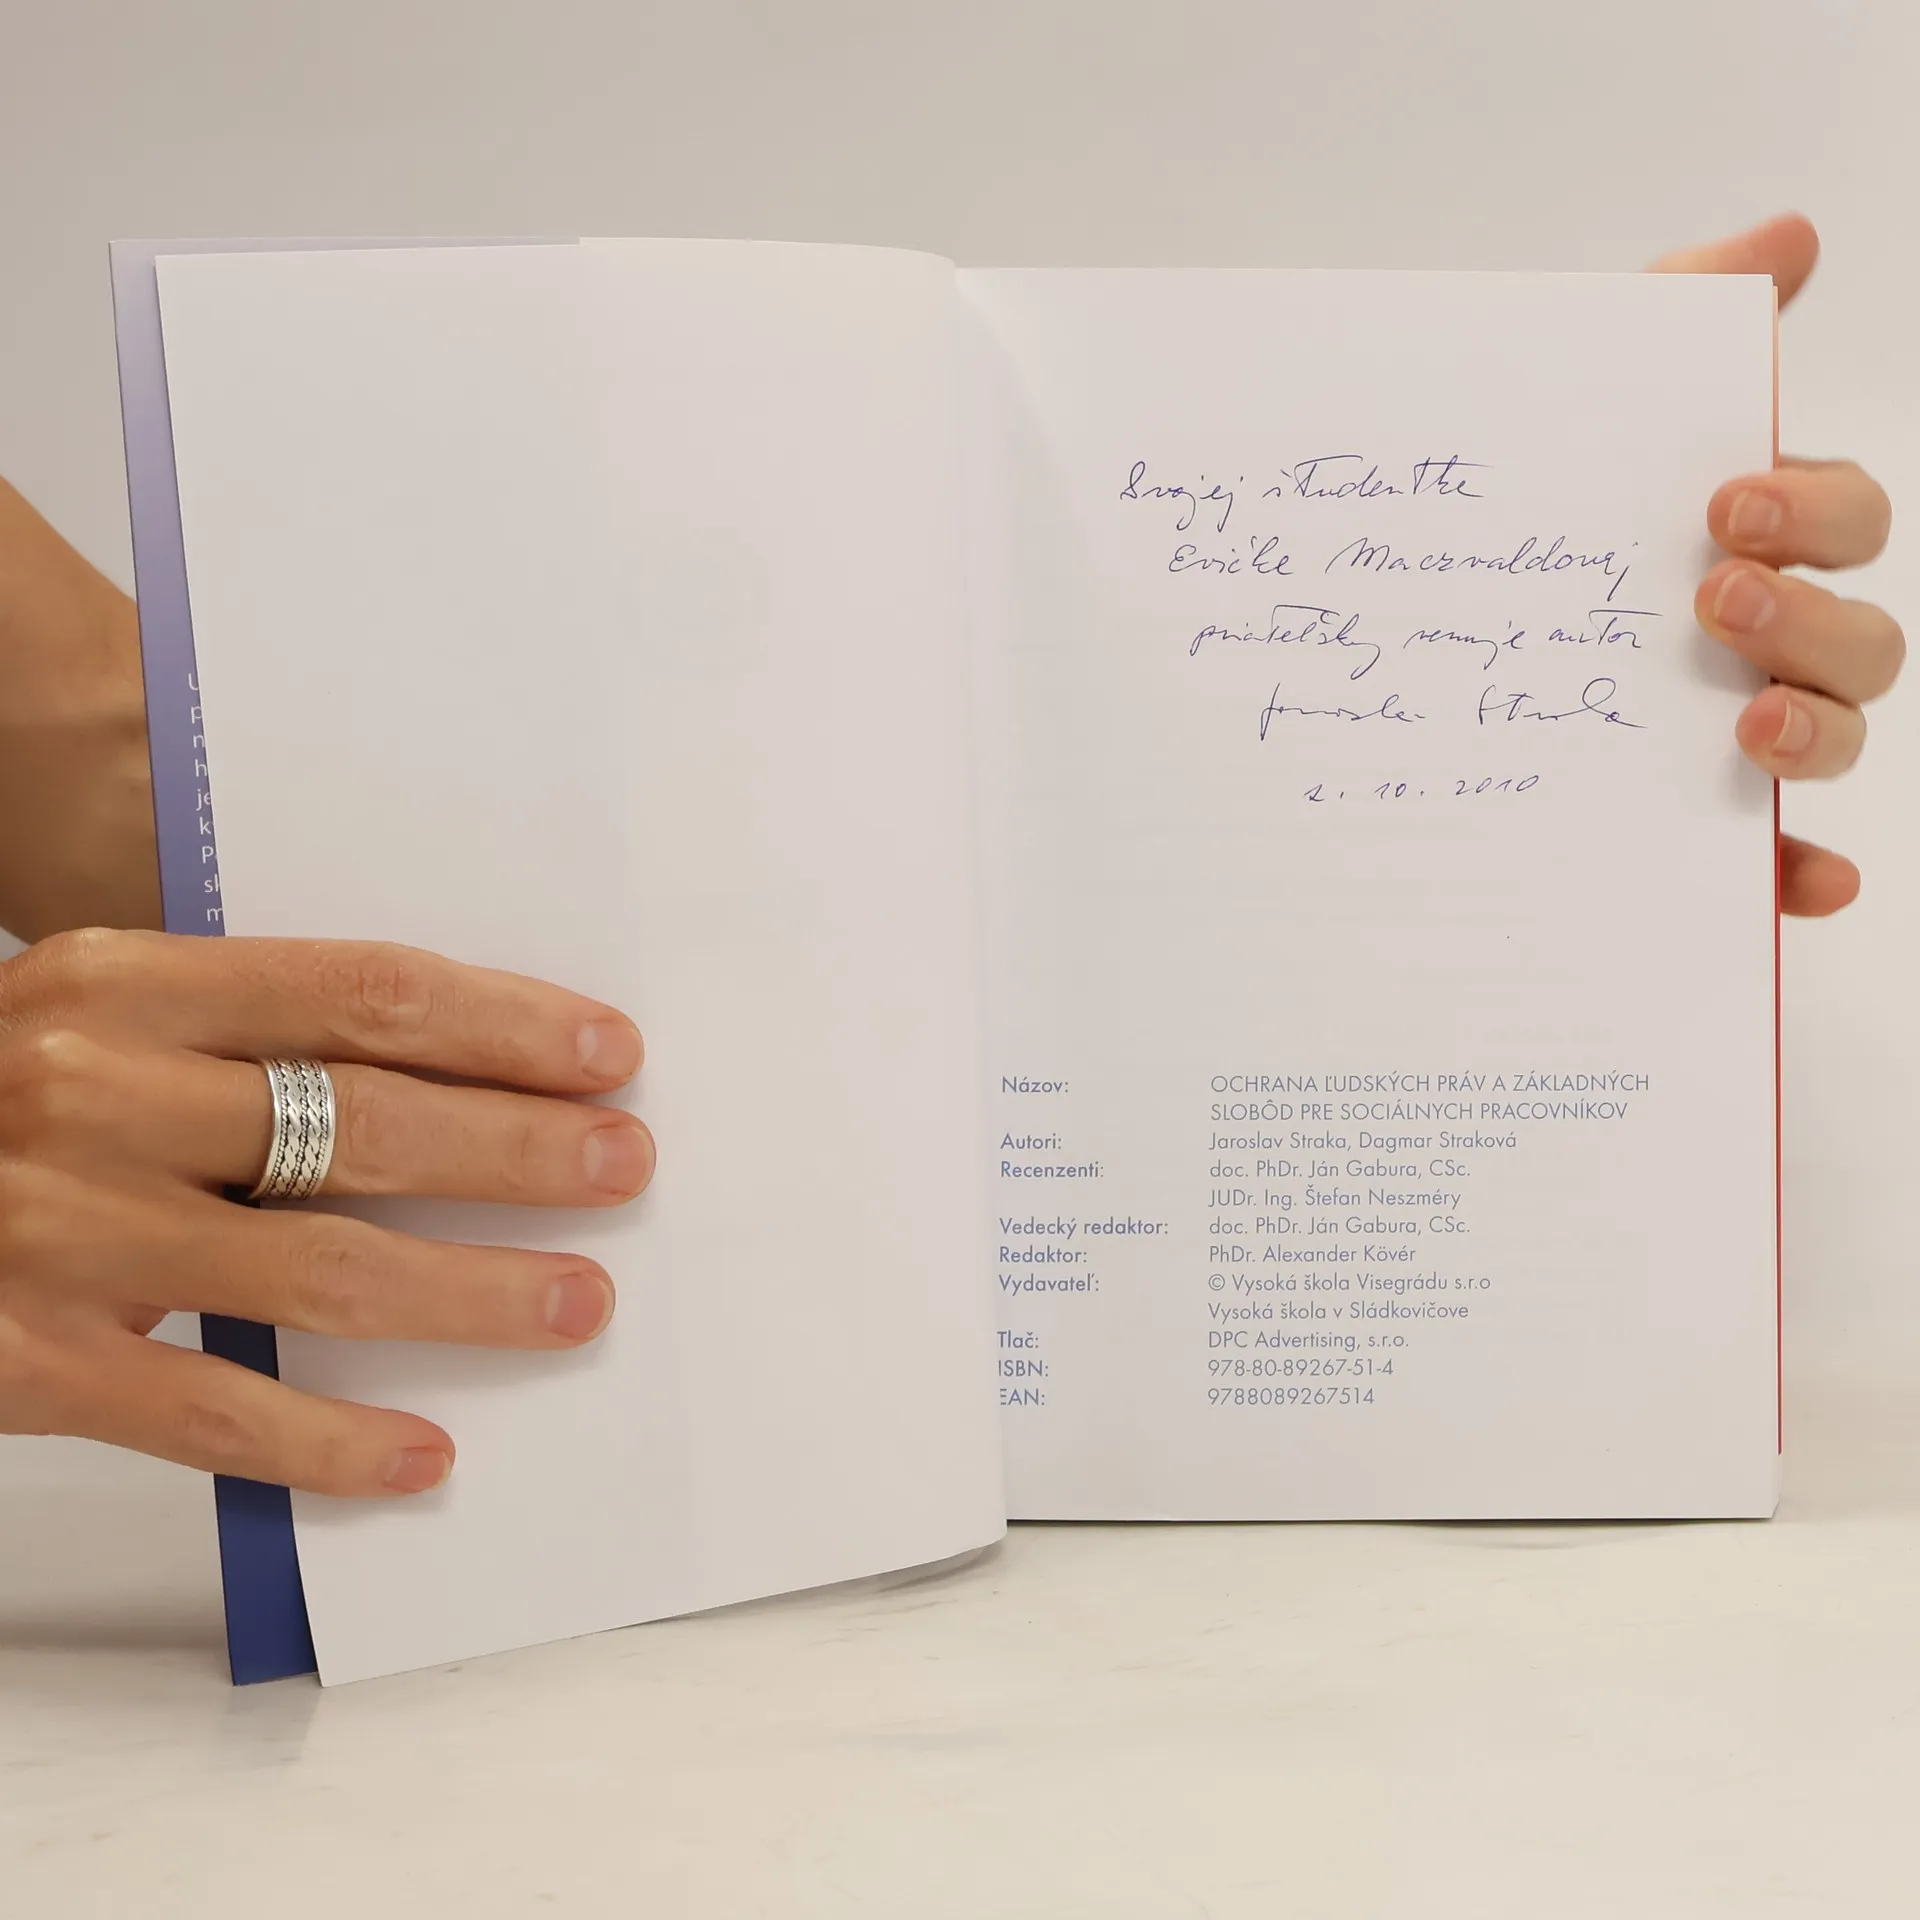 U
p
n
h
je
k
P
sk
m
Svojej študentke
Evičke Maczvaldovej
priateľsky venuje autor
Jaroslav Straka
2. 10. 2010
Názov: OCHRANA ĽUDSKÝCH PRÁV A ZÁKLADNÝCH
SLOBÔD PRE SOCIÁLNYCH PRACOVNÍKOV
Autori: Jaroslav Straka, Dagmar Straková
Recenzenti: doc. PhDr. Ján Gabura, CSc.
JUDr. Ing. Štefan Neszméry
Vedecký redaktor: doc. PhDr. Ján Gabura, CSc.
Redaktor: PhDr. Alexander Kövér
Vydavateľ: © Vysoká škola Visegrádu s.r.o
Vysoká škola v Sládkovičove
Tlač: DPC Advertising, s.r.o.
ISBN: 978-80-89267-51-4
EAN: 9788089267514